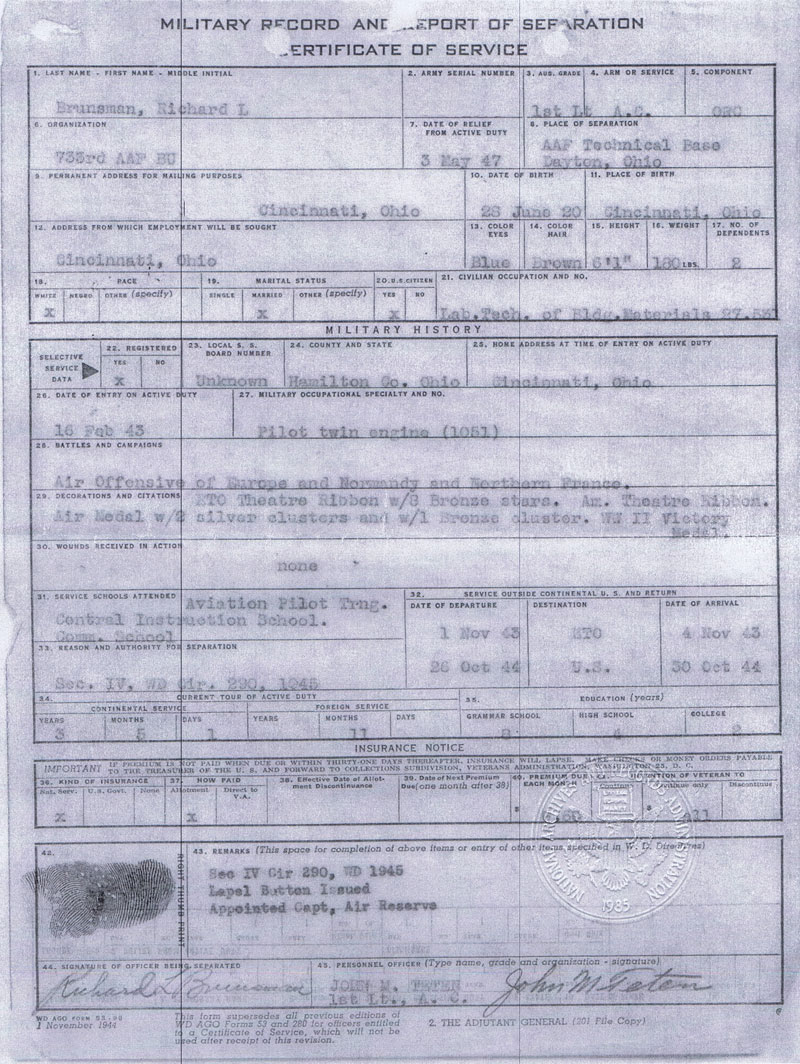 MILITARY RECORD AND REPORT OF SEPARATION
CERTIFICATE OF SERVICE
1. LAST NAME - FIRST NAME - MIDDLE INITIAL
Brunsman, Richard L
2. ARMY SERIAL NUMBER
3. AUS. GRADE
1st Lt
4. ARM OR SERVICE
A.C.
5. COMPONENT
ORC
6. ORGANIZATION
733rd AAF BU
7. DATE OF RELIEF FROM ACTIVE DUTY
3 May 47
8. PLACE OF SEPARATION
AAF Technical Base
Dayton, Ohio
9. PERMANENT ADDRESS FOR MAILING PURPOSES
Cincinnati, Ohio
10. DATE OF BIRTH
28 June 20
11. PLACE OF BIRTH
Cincinnati, Ohio
12. ADDRESS FROM WHICH EMPLOYMENT WILL BE SOUGHT
Cincinnati, Ohio
13. COLOR EYES
Blue
14. COLOR HAIR
Brown
15. HEIGHT
6'1"
16. WEIGHT
180 LBS.
17. NO. OF DEPENDENTS
2
18. RACE
WHITE NEGRO OTHER (specify)
X
19. MARITAL STATUS
SINGLE MARRIED OTHER (specify)
X
20. U.S. CITIZEN
YES NO
X
21. CIVILIAN OCCUPATION AND NO.
Lab.Tech. of Bldg.Materials
MILITARY HISTORY
SELECTIVE SERVICE DATA
22. REGISTERED
YES NO
X
23. LOCAL S. S. BOARD NUMBER
Unknown
24. COUNTY AND STATE
Hamilton Co. Ohio
25. HOME ADDRESS AT TIME OF ENTRY ON ACTIVE DUTY
Cincinnati, Ohio
26. DATE OF ENTRY ON ACTIVE DUTY
16 Feb 43
27. MILITARY OCCUPATIONAL SPECIALTY AND NO.
Pilot twin engine (1051)
28. BATTLES AND CAMPAIGNS
Air Offensive of Europe and Normandy and Northern France.
29. DECORATIONS AND CITATIONS ETO Theatre Ribbon w/3 Bronze stars. Am. Theatre Ribbon.
Air Medal w/2 silver clusters and w/1 Bronze cluster. WW II Victory
Medal.
30. WOUNDS RECEIVED IN ACTION
none
31. SERVICE SCHOOLS ATTENDED Aviation Pilot Trng.
Central Instruction School.
Comm. School
32. SERVICE OUTSIDE CONTINENTAL U. S. AND RETURN
DATE OF DEPARTURE DESTINATION DATE OF ARRIVAL
1 Nov 43 ETO 4 Nov 43
26 Oct 44 U.S. 30 Oct 44
33. REASON AND AUTHORITY FOR SEPARATION
Sec. IV, WD Cir. 290, 1945
34. CURRENT TOUR OF ACTIVE DUTY
CONTINENTAL SERVICE FOREIGN SERVICE
YEARS MONTHS DAYS YEARS MONTHS DAYS
3 5 1 11
35. EDUCATION (years)
GRAMMAR SCHOOL HIGH SCHOOL COLLEGE
8 4 2
INSURANCE NOTICE
IMPORTANT IF PREMIUM IS NOT PAID WHEN DUE OR WITHIN THIRTY-ONE DAYS THEREAFTER, INSURANCE WILL LAPSE. MAKE CHECKS OR MONEY ORDERS PAYABLE
TO THE TREASURER OF THE U. S. AND FORWARD TO COLLECTIONS SUBDIVISION, VETERANS ADMINISTRATION, WASHINGTON 25, D. C.
36. KIND OF INSURANCE
Nat. Serv. U.S. Govt. None
X
37. HOW PAID
Allotment Direct to V.A.
X
38. Effective Date of Allotment Discontinuance
39. Date of Next Premium Due (one month after 38)
40. PREMIUM DUE EACH MONTH
$
INTENTION OF VETERAN TO
Continue only Discontinue
$
NATIONAL ARCHIVES ADMINISTRATION
1985
42.
RIGHT THUMB PRINT
43. REMARKS (This space for completion of above items or entry of other items specified in W. D. Directives)
Sec IV Cir 290, WD 1945
Lapel Button Issued
Appointed Capt, Air Reserve
44. SIGNATURE OF OFFICER BEING SEPARATED
Richard L Brunsman
45. PERSONNEL OFFICER (Type name, grade and organization - signature)
JOHN M. TETEN
1st Lt., A. C.
John M Teten
WD AGO FORM 53-98
1 November 1944
This form supersedes all previous editions of
WD AGO Forms 53 and 280 for officers entitled
to a Certificate of Service, which will not be
used after receipt of this revision.
2. THE ADJUTANT GENERAL (201 File Copy)